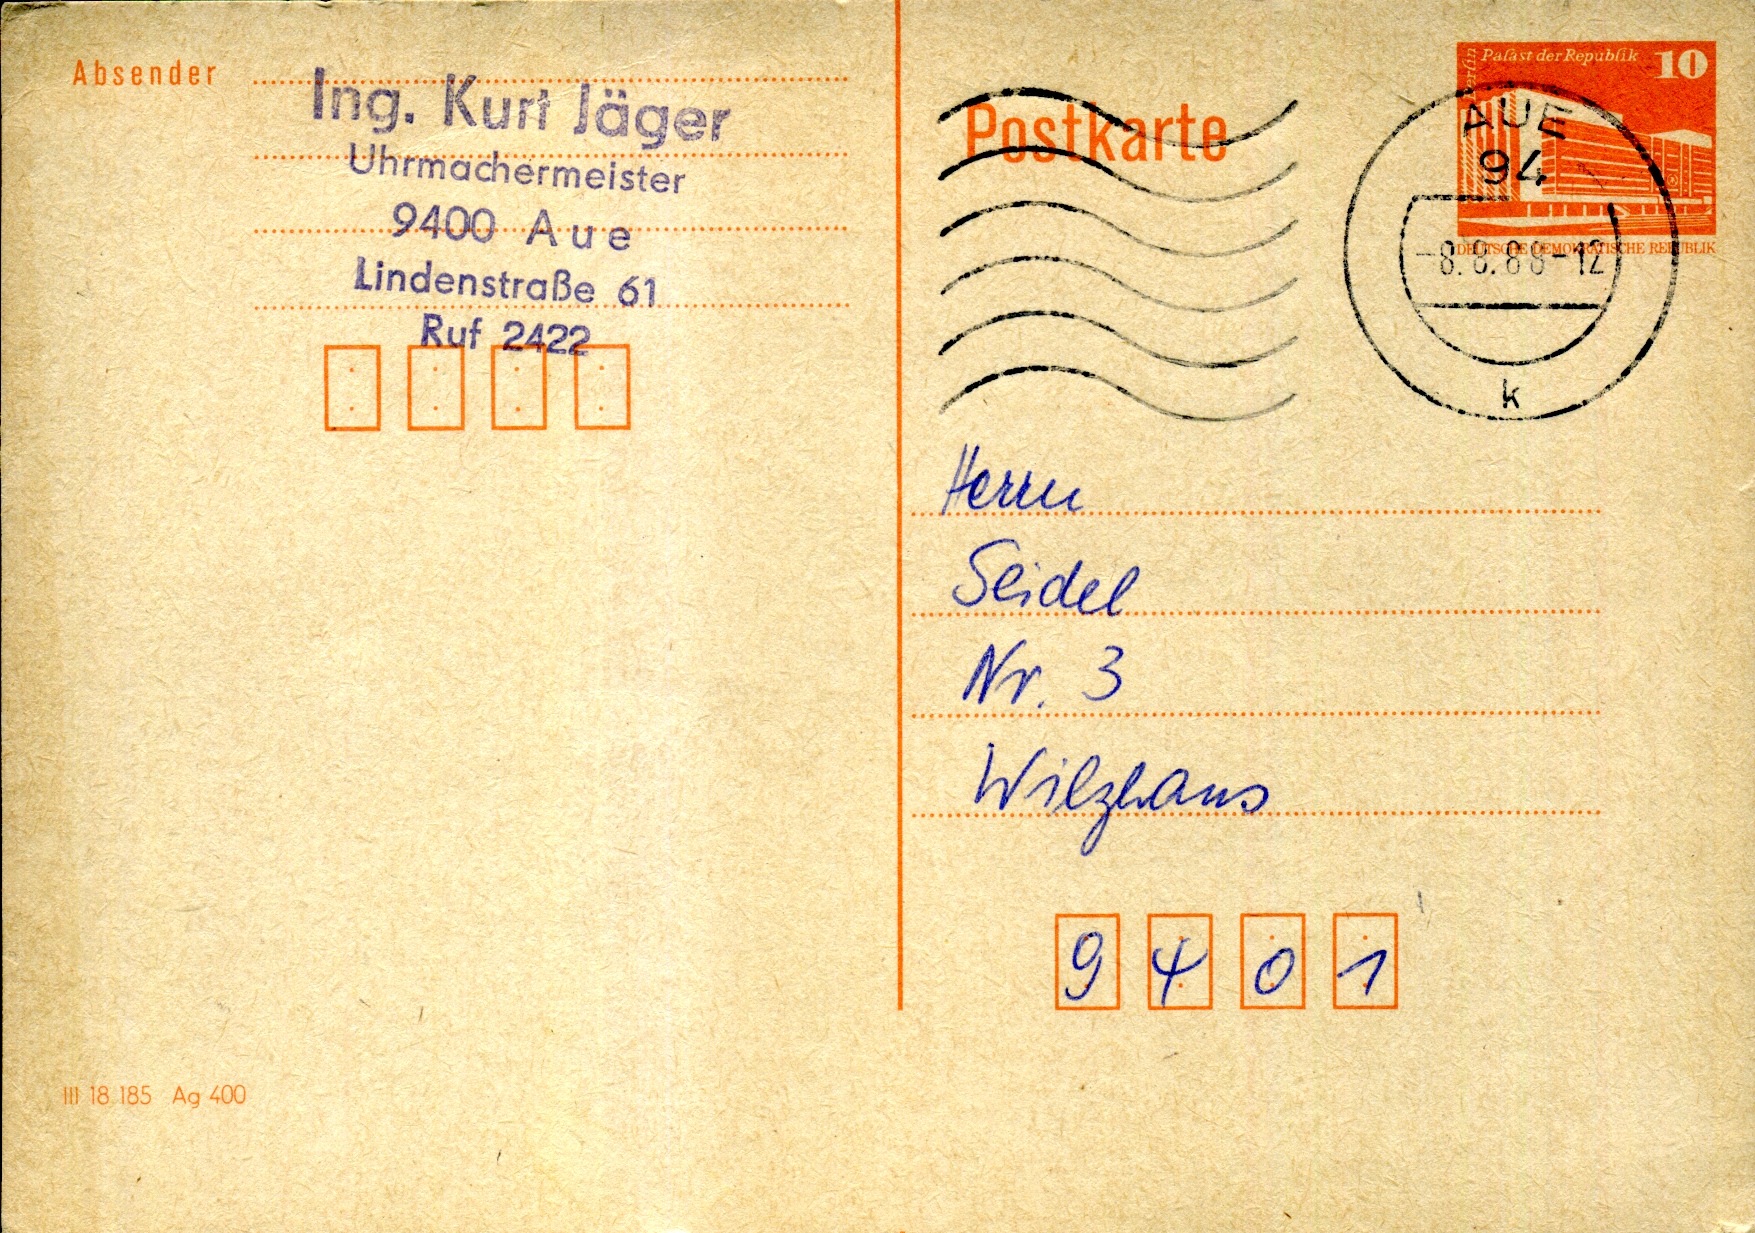 Absender
Ing. Kurt Jäger
Uhrmachermeister
9400 Aue
Lindenstraße 61
Ruf 2422
III 18 185 Ag 400
Postkarte
Berlin
Palast der Republik 10
DEUTSCHE DEMOKRATISCHE REPUBLIK
AUE
94
-8.8.88-12
k
Herrn
Seidel
Nr. 3
Wilzhaus
9401